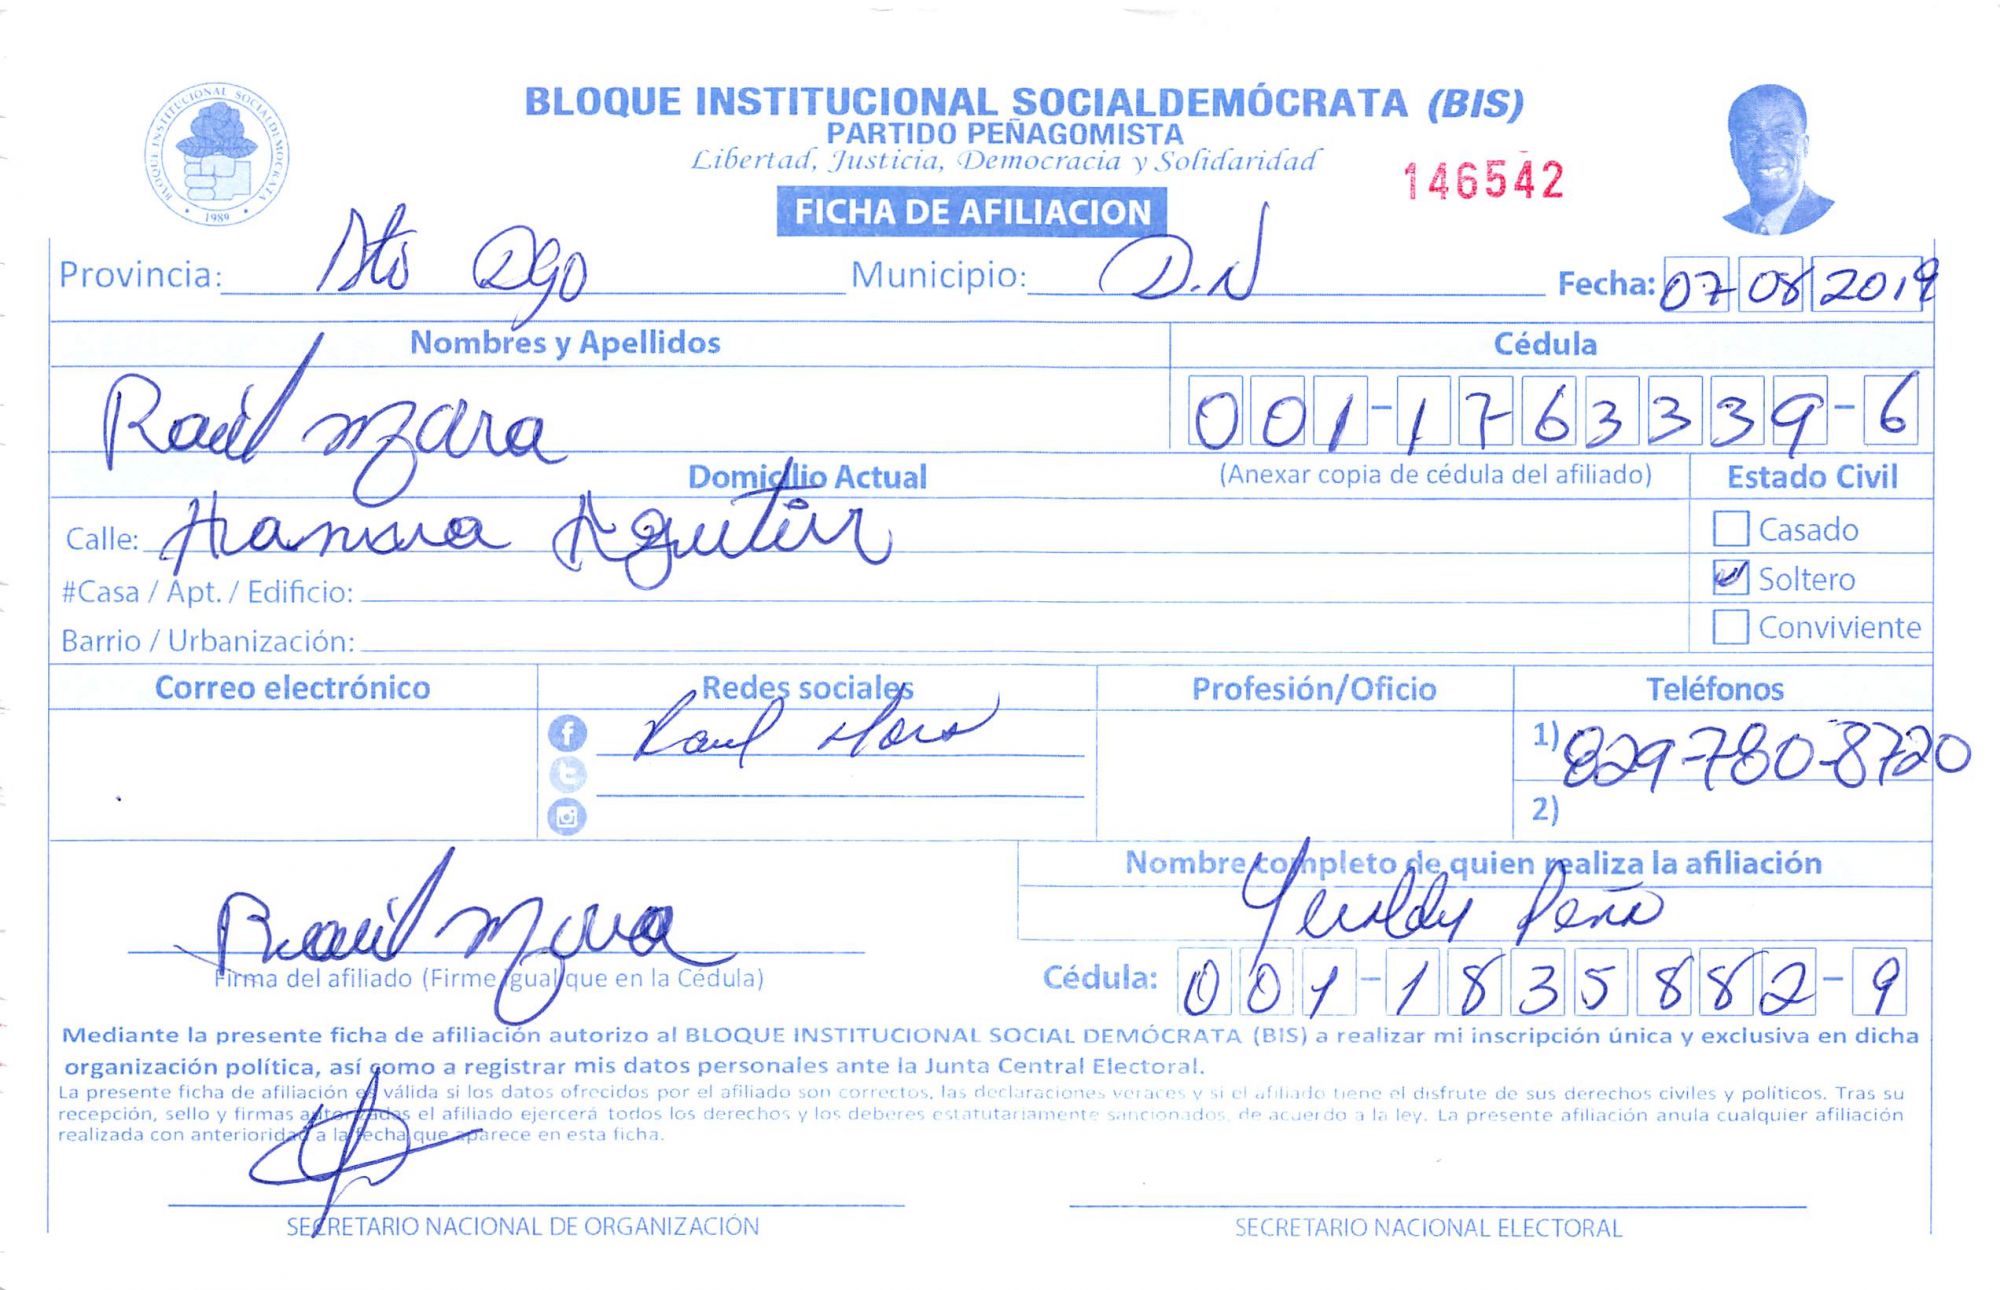 BLOQUE INSTITUCIONAL SOCIALDEMÓCRATA (BIS)
PARTIDO PEÑAGOMISTA
Libertad, Justicia, Democracia y Solidaridad
146542
FICHA DE AFILIACION
BLOQUE INSTITUCIONAL SOCIALDEMOCRATA
1989
Provincia: Sto Dgo Municipio: D.N Fecha: 07 08 2019
Nombres y Apellidos Cédula
Raúl 001-1763339-6
Domicilio Actual (Anexar copia de cédula del afiliado) Estado Civil
Calle: Casado
#Casa / Apt. / Edificio: Soltero
Barrio / Urbanización: Conviviente
Correo electrónico Redes sociales Profesión/Oficio Teléfonos
Raul 1) 829-780-8720
2)
Nombre completo de quien realiza la afiliación
Peña
Raúl
Firma del afiliado (Firme igual que en la Cédula) Cédula: 001-1835882-9
Mediante la presente ficha de afiliación autorizo al BLOQUE INSTITUCIONAL SOCIAL DEMÓCRATA (BIS) a realizar mi inscripción única y exclusiva en dicha
organización política, así como a registrar mis datos personales ante la Junta Central Electoral.
La presente ficha de afiliación es válida si los datos ofrecidos por el afiliado son correctos, las declaraciones veraces y si el afiliado tiene el disfrute de sus derechos civiles y políticos. Tras su
recepción, sello y firmas autorizadas el afiliado ejercerá todos los derechos y los deberes estatutariamente sancionados, de acuerdo a la ley. La presente afiliación anula cualquier afiliación
realizada con anterioridad a la fecha que aparece en esta ficha.
SECRETARIO NACIONAL DE ORGANIZACIÓN SECRETARIO NACIONAL ELECTORAL